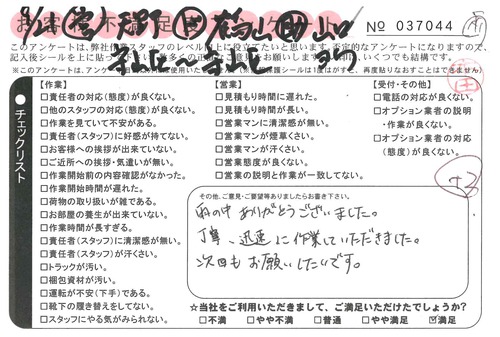 お客様不満足度アンケート
No 037044
このアンケートは、弊社作業スタッフのレベル向上に役立てたいと思います。否定的なアンケートになりますので、
【作業】
□責任者の対応(態度)が良くない。
□他のスタッフの対応(態度)が良くない。
□作業を見ていて不安がある。
□責任者(スタッフ)に好感が持てない。
□お客様への挨拶が出来ていない。
□ご近所への挨拶・気遣いが無い。
□作業開始前の内容確認がなかった。
□作業開始時間が遅れた。
□荷物の取り扱いが雑である。
□お部屋の養生が出来ていない。
□作業時間が長すぎる。
□責任者(スタッフ)に清潔感が無い。
□責任者(スタッフ)が汗くさい。
□トラックが汚い。
□梱包資材が汚い。
□運転が不安(下手)である。
□靴下の履き替えをしてない。
□スタッフにやる気がみられない。
【営業】
□見積もり時間に遅れた。
□見積もり時間が長い。
□営業マンに清潔感が無い。
□営業マンが煙草くさい。
□営業マンが汗くさい。
□営業態度が良くない。
□営業の説明と作業が一致してない。
【受付・その他】
□電話の対応が良くない。
□オプション業者の説明
・作業が良くない。
□オプション業者の対応
(態度)が良くない。
チェックリスト
その他、ご意見・ご要望等ありましたらお書き下さい。
雨の中 ありがとうございました。
丁寧、迅速に作業していただきました。
次回も お願いしたいです。
☆当社をご利用いただきまして、ご満足いただけたでしょうか?
□不満 □やや不満 □普通 □やや満足 ☑満足